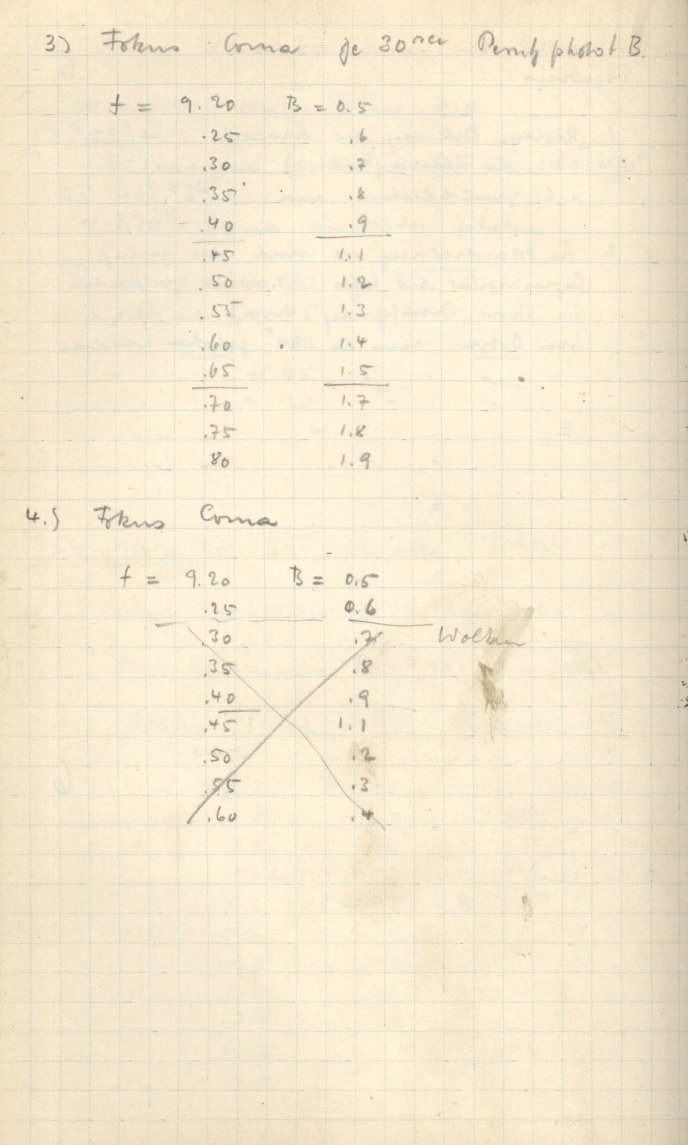 3) Fokus Coma je 30 sec photot B.
f = 9.20 B = 0.5
.25 .6
.30 .7
.35 .8
.40 .9
.45 1.1
.50 1.2
.55 1.3
.60 1.4
.65 1.5
.70 1.7
.75 1.8
.80 1.9
4.) Fokus Coma
f = 9.20 B = 0.5
.25 0.6
.30 .7 Wolken
.35 .8
.40 .9
.45 1.1
.50 .2
.55 .3
.60 .4